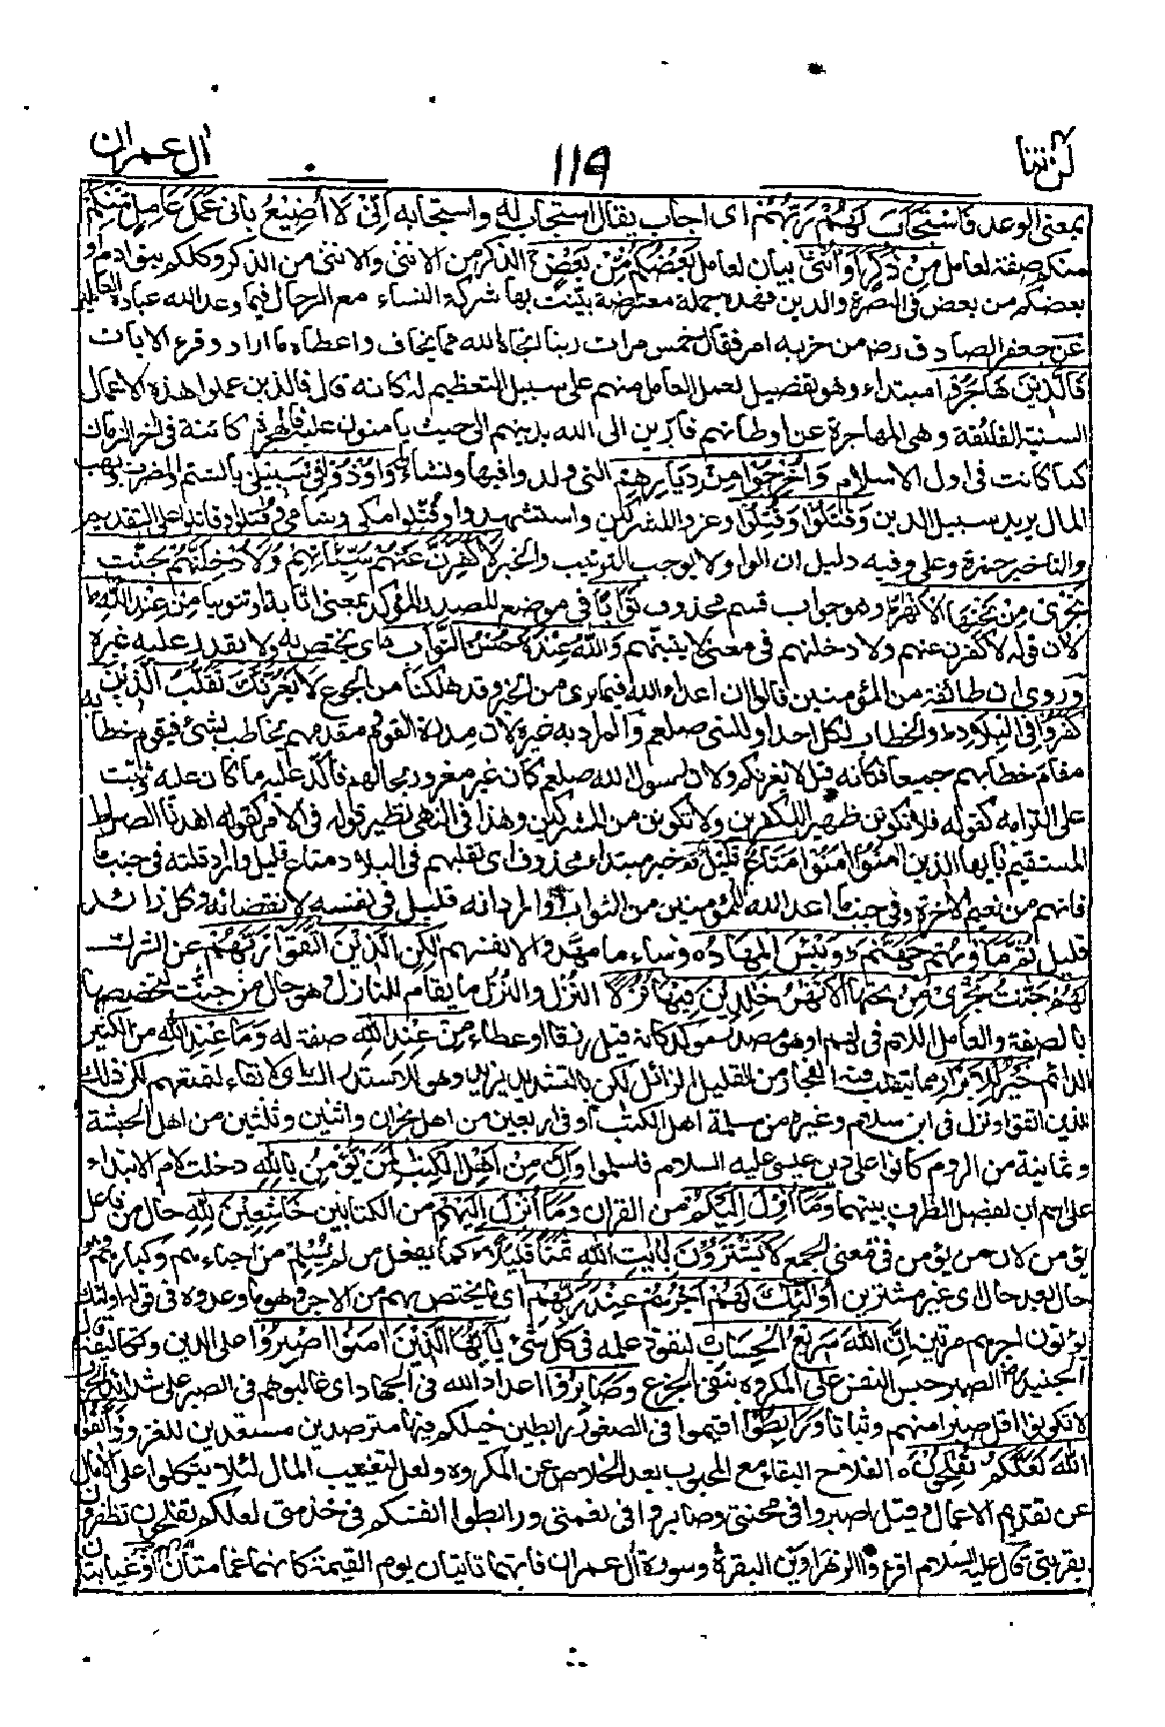 لن تنا ٤
١١٩
ال عمران
بمعنى الوعد فَاسْتَجَابَ لَهُمْ رَبُّهُمْ اى اجاب يقال استجاب له واستجابه اَنِّىْ لَا اُضِيْعُ بانى عَمَلَ عَامِلٍ مِّنْكُمْ
منكم صفة لعامل مِنْ ذَكَرٍ اَوْ اُنْثٰى بيان لعامل بَعْضُكُمْ مِّنْ بَعْضٍ الذكر من الانثى والانثى من الذكر وكلكم بنو ادم او
بعضكم من بعض فى النصرة والدين فهذه جملة معترضة بيّنت بها شركة النساء مع الرجال فيما وعد الله عباده العاملين
عن جعفر الصادق رض من حزبه امر فقال خمس مرات ربنا انجاه الله مما يخاف واعطاه ما اراد وقرء الايات
فَالَّذِيْنَ هَاجَرُوْا مبتداء وهو تفضيل لعمل العامل منهم على سبيل التعظيم له كانه قال فالذين عملوا هذه الاعمال
السنية الفائقة وهى المهاجرة عن اوطانهم فارين الى الله بدينهم الى حيث يامنون عليه فالهجرة كائنة فى اخر الزمان
كما كانت فى اول الاسلام وَاُخْرِجُوْا مِنْ دِيَارِهِمْ التى ولدوا فيها ونشاءوا وَاُوْذُوْا فِىْ سَبِيْلِىْ بالشتم والضرب ونهب
المال يريد سبيل الدين وَقٰتَلُوْا وَقُتِلُوْا وغزوا المشركين واستشهدوا وقُتّلوا مكى وشامى وقتلوا وقاتلوا على التقديم
والتاخير حمزة وعلى وفيه دليل ان الواو لا يوجب الترتيب والخبر لَاُكَفِّرَنَّ عَنْهُمْ سَيِّئَاتِهِمْ وَلَاُدْخِلَنَّهُمْ جَنّٰتٍ
تَجْرِىْ مِنْ تَحْتِهَا الْاَنْهٰرُ وهو جواب قسم محذوف ثَوَابًا فى موضع المصدر المؤكد بمعنى اثابة او تثويبا مِّنْ عِنْدِ اللّٰهِ
لان قوله لاكفرن عنهم ولادخلنهم فى معنى لاثيبنهم وَاللّٰهُ عِنْدَهٗ حُسْنُ الثَّوَابِ اى يختص به ولا يقدر عليه غيره
وروى ان طائفة من المؤمنين قالوا ان اعداء الله فيما نرى من الخير وقد هلكنا من الجوع لَا يَغُرَّنَّكَ تَقَلُّبُ الَّذِيْنَ
كَفَرُوْا فِى الْبِلَادِ والخطاب لكل احد او للنبى صلعم والمراد به غيره لان مدرة القوم ومقدمهم يخاطب بشئ فيقوم خطابه
مقام خطابهم جميعا فكانه قيل لا يغرنكم ولان رسول الله صلعم كان غير مغرور بحالهم فاكد عليه ما كان عليه وثبت
على التزامه كقوله فلا تكونن ظهيرا للكفرين ولا تكونن من المشركين وهذا فى النهى نظير قوله فى الامر كقوله اهدنا الصراط
المستقيم يايها الذين امنوا امنوا مَتَاعٌ قَلِيْلٌ خبر مبتداء محذوف اى تقلبهم فى البلاد متاع قليل واراد قلته فى جنب
فاتهم من نعيم الاخرة وفى جنب ما اعد الله للمؤمنين من الثواب او المراد انه قليل فى نفسه لانقضائه وكل زائد
قليل ثُمَّ مَاْوٰىهُمْ جَهَنَّمُ وَبِئْسَ الْمِهَادُ وساء ما مهدوا لانفسهم لٰكِنِ الَّذِيْنَ اتَّقَوْا رَبَّهُمْ عن الشرك
لَهُمْ جَنّٰتٌ تَجْرِىْ مِنْ تَحْتِهَا الْاَنْهٰرُ خٰلِدِيْنَ فِيْهَا نُزُلًا النُزْل والنُزُل ما يقام للنازل وهو حال من جنّٰت لتخصيصها
بالصفة والعامل اللام فى لهم او هو مصدر مؤكد كانه قيل رزقا او عطاء مِّنْ عِنْدِ اللّٰهِ صفة له وَمَا عِنْدَ اللّٰهِ من الكثير
الدائم خَيْرٌ لِّلْاَبْرَارِ مما يتقلب فيه الفجار من القليل الزائل لكن بالتشديد يزيد وهو للاستدراك اى لابقاء لتمتعهم لكن ذلك
للذين اتقوا ونزل فى ابن سلام وغيره من مسلمة اهل الكتب او فى اربعين من اهل نجران واثنين وثلثين من اهل الحبشة
وثمانية من الروم كانوا على دين عيسى عليه السلام فاسلموا وَاِنَّ مِنْ اَهْلِ الْكِتٰبِ لَمَنْ يُّؤْمِنُ بِاللّٰهِ دخلت لام الابتداء
على اسم ان لفصل الظرف بينهما وَمَا اُنْزِلَ اِلَيْكُمْ من القران وَمَا اُنْزِلَ اِلَيْهِمْ من الكتابين خٰشِعِيْنَ لِلّٰهِ حال من فاعل
يؤمن لان من يؤمن فى معنى الجمع لَا يَشْتَرُوْنَ بِاٰيٰتِ اللّٰهِ ثَمَنًا قَلِيْلًا كما يفعل من لم يسلم من احبارهم وكبارهم وهو
حال بعد حال اى غير مشترين اُولٰئِكَ لَهُمْ اَجْرُهُمْ عِنْدَ رَبِّهِمْ اى ما يختص بهم من الاجر وهو ما وعدوه فى قوله اولئك
يؤتون اجرهم مرتين اِنَّ اللّٰهَ سَرِيْعُ الْحِسَابِ لنفوذ علمه فى كل شئ يٰاَيُّهَا الَّذِيْنَ اٰمَنُوا اصْبِرُوْا على الدين وتكاليفه قال
الجنيد رض الصبر حبس النفس على المكروه بنفى الجزع وَصَابِرُوْا اعداء الله فى الجهاد اى غالبوهم فى الصبر على شدائد الحرب
لا تكونوا اقل صبرا منهم وثباتا وَرَابِطُوْا اقيموا فى الثغور رابطين خيلكم فيها مترصدين مستعدين للغزو وَاتَّقُوا
اللّٰهَ لَعَلَّكُمْ تُفْلِحُوْنَ الفلاح البقاء مع المحبوب بعد الخلاص عن المكروه ولعل لتغييب المال لئلا يتكلوا على الامال
عن تقديم الاعمال وقيل اصبروا فى محنتى وصابروا فى نعمتى ورابطوا انفسكم فى خدمتى لعلكم تفلحون تظفرون
بقربتى قال عليه السلام اقرءوا الزهراوين البقرة وسورة ال عمران فانهما تاتيان يوم القيمة كانهما غمامتان او غيابتان